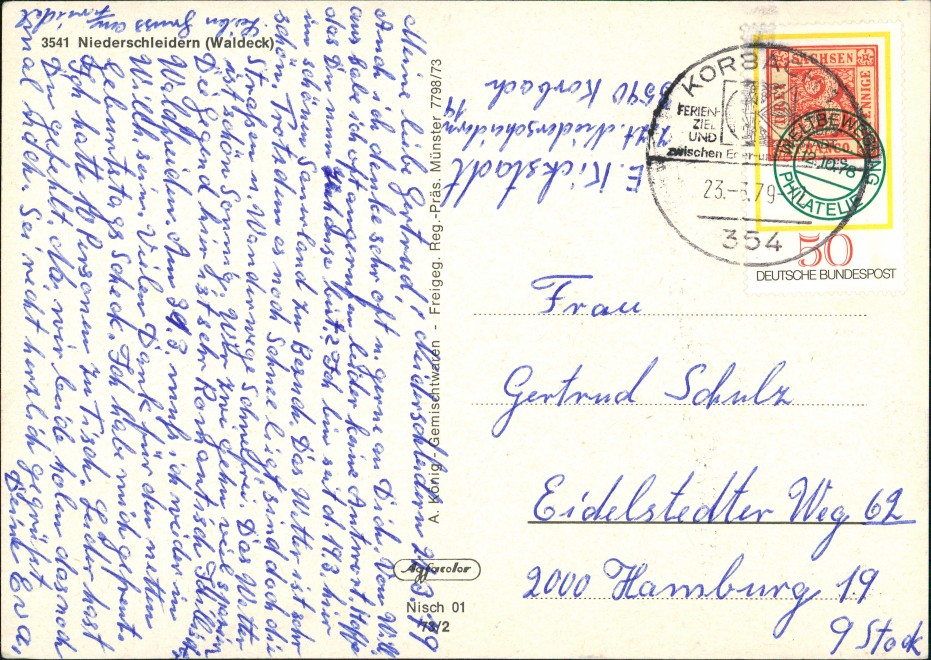 3541 Niederschleidern (Waldeck)
Meine liebe Gertrud! Niederschleidern 21.3.79
Auch ich denke sehr oft u. gerne an Dich. Vom
aus habe ich oft angerufen leider keine Antwort. Hoffe
das Du nun zu Hause bist? Ich bin seit d. 19.3 hier
im schönen Sauerland zu Besuch. Das Wetter ist sehr
schön. Trotzdem es noch Schnee liegt sind doch die
Straßen u. Wanderwege Schneefrei. Das Wetter
ist schön Sonnig, wir zwei gehen viel spazieren
Die Gegend hier ist sehr Romantisch
Waldecken. Am 31.3. muß ich weiter im
Willkommen. Vielen Dank für den netten
Geburtstags Scheck. Ich habe mich gefreut.
Ich hatte 11 Personen zu Tisch. Leider hast
Du gefehlt, dh, wir beide holen das noch
mal nach. Sei recht herzlich gegrüßt
Deine Eva.
Gruss
A. König, Gemischtwaren - Freigeg. Reg.-Präs. Münster 7798/73
Agfacolor
Nisch 01
73/2
E. Kickstadt
Niederschleidern 14
3540 Korbach
KORBA
FERIEN-
ZIEL
UND
zwischen Eder-u
23.-3.79-
354
SACHSEN
PFENNIGE
FRANCO
WELTBEWEGUNG
12.10.78
PHILATELIE
50
DEUTSCHE BUNDESPOST
Frau
Gertrud Schulz
Eidelstedter Weg 62
2000 Hamburg 19
9 Stock